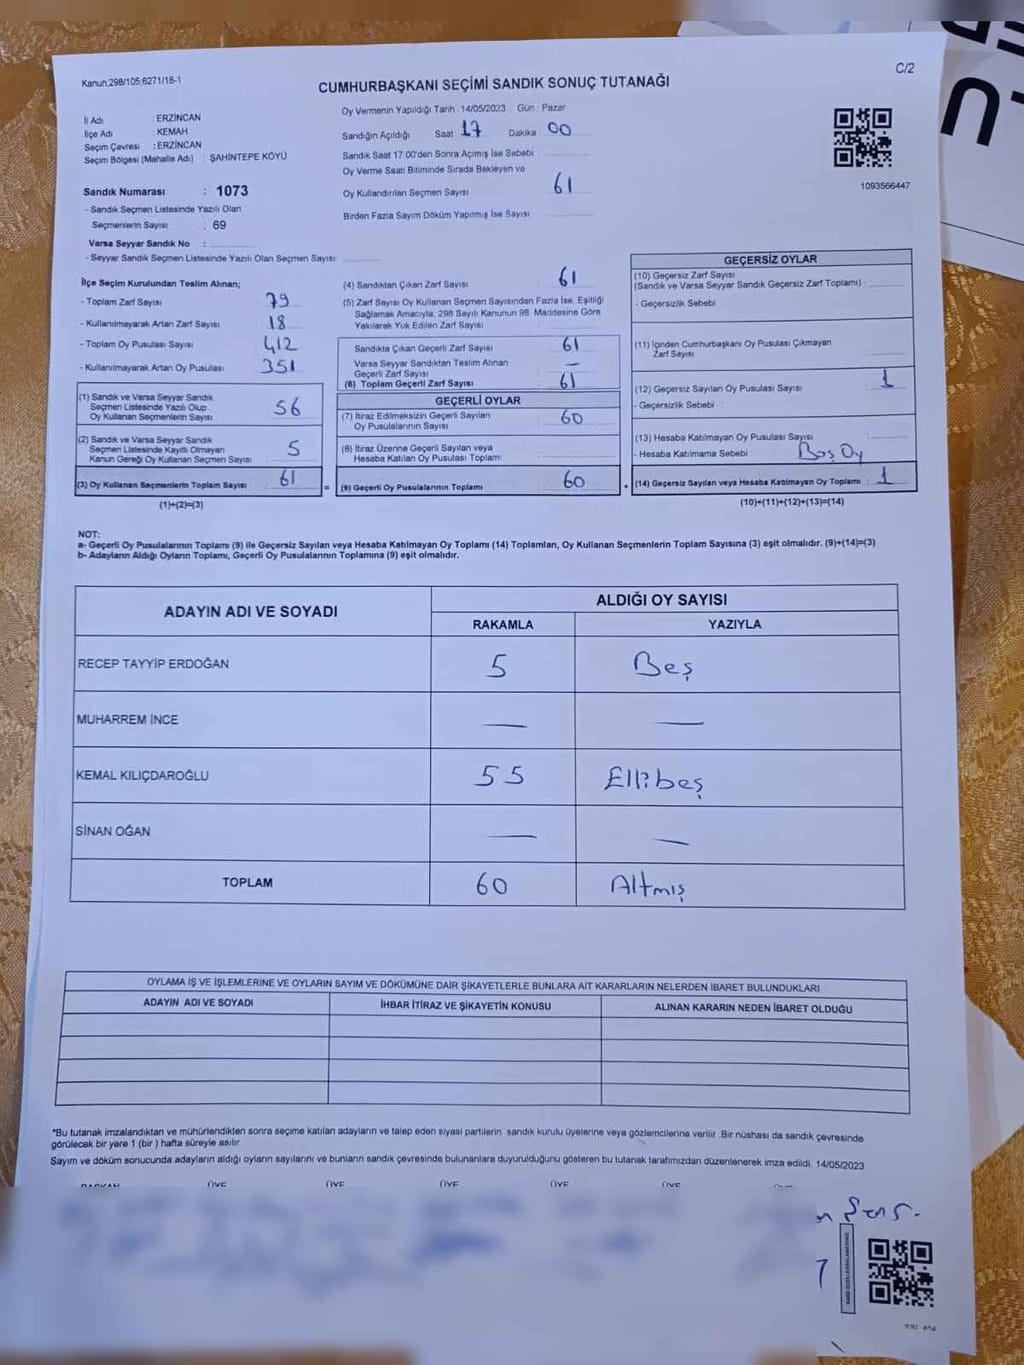 Kanun:298/105;6271/16-1
CUMHURBAŞKANI SEÇİMİ SANDIK SONUÇ TUTANAĞI
C/2
İl Adı : ERZİNCAN
İlçe Adı : KEMAH
Seçim Çevresi : ERZİNCAN
Seçim Bölgesi (Mahalle Adı) : ŞAHİNTEPE KÖYÜ
Sandık Numarası : 1073
- Sandık Seçmen Listesinde Yazılı Olan
Seçmenlerin Sayısı : 69
Varsa Seyyar Sandık No :
- Seyyar Sandık Seçmen Listesinde Yazılı Olan Seçmen Sayısı:
Oy Vermenin Yapıldığı Tarih :14/05/2023 Gün : Pazar
Sandığın Açıldığı Saat 17 Dakika 00
Sandık Saat 17:00'den Sonra Açılmış İse Sebebi :
Oy Verme Saati Bitiminde Sırada Bekleyen ve
Oy Kullandırılan Seçmen Sayısı : 61
Birden Fazla Sayım Döküm Yapılmış İse Sayısı :
1093566447
İlçe Seçim Kurulundan Teslim Alınan;
- Toplam Zarf Sayısı : 79
- Kullanılmayarak Artan Zarf Sayısı : 18
- Toplam Oy Pusulası Sayısı : 412
- Kullanılmayarak Artan Oy Pusulası : 351
(1) Sandık ve Varsa Seyyar Sandık
Seçmen Listesinde Yazılı Olup
Oy Kullanan Seçmenlerin Sayısı : 56
(2) Sandık ve Varsa Seyyar Sandık
Seçmen Listesinde Kayıtlı Olmayan
Kanun Gereği Oy Kullanan Seçmen Sayısı : 5
(3) Oy Kullanan Seçmenlerin Toplam Sayısı : 61
(1)+(2)=(3)
(4) Sandıktan Çıkan Zarf Sayısı : 61
(5) Zarf Sayısı Oy Kullanan Seçmen Sayısından Fazla İse, Eşitliği
Sağlamak Amacıyla, 298 Sayılı Kanunun 98. Maddesine Göre
Yakılarak Yok Edilen Zarf Sayısı :
Sandıkta Çıkan Geçerli Zarf Sayısı : 61
Varsa Seyyar Sandıktan Teslim Alınan
Geçerli Zarf Sayısı : —
(6) Toplam Geçerli Zarf Sayısı : 61
GEÇERLİ OYLAR
(7) İtiraz Edilmeksizin Geçerli Sayılan
Oy Pusulalarının Sayısı : 60
(8) İtiraz Üzerine Geçerli Sayılan veya
Hesaba Katılan Oy Pusulası Toplam:
= (9) Geçerli Oy Pusulalarının Toplamı : 60
GEÇERSİZ OYLAR
(10) Geçersiz Zarf Sayısı
(Sandık ve Varsa Seyyar Sandık Geçersiz Zarf Toplamı) :
- Geçersizlik Sebebi :
(11) İçinden Cumhurbaşkanı Oy Pusulası Çıkmayan
Zarf Sayısı :
(12) Geçersiz Sayılan Oy Pusulası Sayısı : 1
- Geçersizlik Sebebi :
(13) Hesaba Katılmayan Oy Pusulası Sayısı :
- Hesaba Katılmama Sebebi : Boş Oy
+ (14) Geçersiz Sayılan veya Hesaba Katılmayan Oy Toplamı : 1
(10)+(11)+(12)+(13)=(14)
NOT:
a- Geçerli Oy Pusulalarının Toplamı (9) ile Geçersiz Sayılan veya Hesaba Katılmayan Oy Toplamı (14) Toplamları, Oy Kullanan Seçmenlerin Toplam Sayısına (3) eşit olmalıdır. (9)+(14)=(3)
b- Adayların Aldığı Oyların Toplamı, Geçerli Oy Pusulalarının Toplamına (9) eşit olmalıdır.
ADAYIN ADI VE SOYADI
ALDIĞI OY SAYISI
RAKAMLA YAZIYLA
RECEP TAYYİP ERDOĞAN 5 Beş
MUHARREM İNCE — —
KEMAL KILIÇDAROĞLU 55 Ellibeş
SİNAN OĞAN — —
TOPLAM 60 Altmış
OYLAMA İŞ VE İŞLEMLERİNE VE OYLARIN SAYIM VE DÖKÜMÜNE DAİR ŞİKAYETLERLE BUNLARA AİT KARARLARIN NELERDEN İBARET BULUNDUKLARI
ADAYIN ADI VE SOYADI İHBAR İTİRAZ VE ŞİKAYETİN KONUSU ALINAN KARARIN NEDEN İBARET OLDUĞU
*Bu tutanak imzalandıktan ve mühürlendikten sonra seçime katılan adayların ve talep eden siyasi partilerin sandık kurulu üyelerine veya gözlemcilerine verilir .Bir nüshası da sandık çevresinde
görülecek bir yere 1 (bir ) hafta süreyle asılır.
Sayım ve döküm sonucunda adayların aldığı oyların sayılarını ve bunların sandık çevresinde bulunanlara duyurulduğunu gösteren bu tutanak tarafımızdan düzenlenerek imza edildi. 14/05/2023
BAŞKAN ÜYE ÜYE ÜYE ÜYE ÜYE